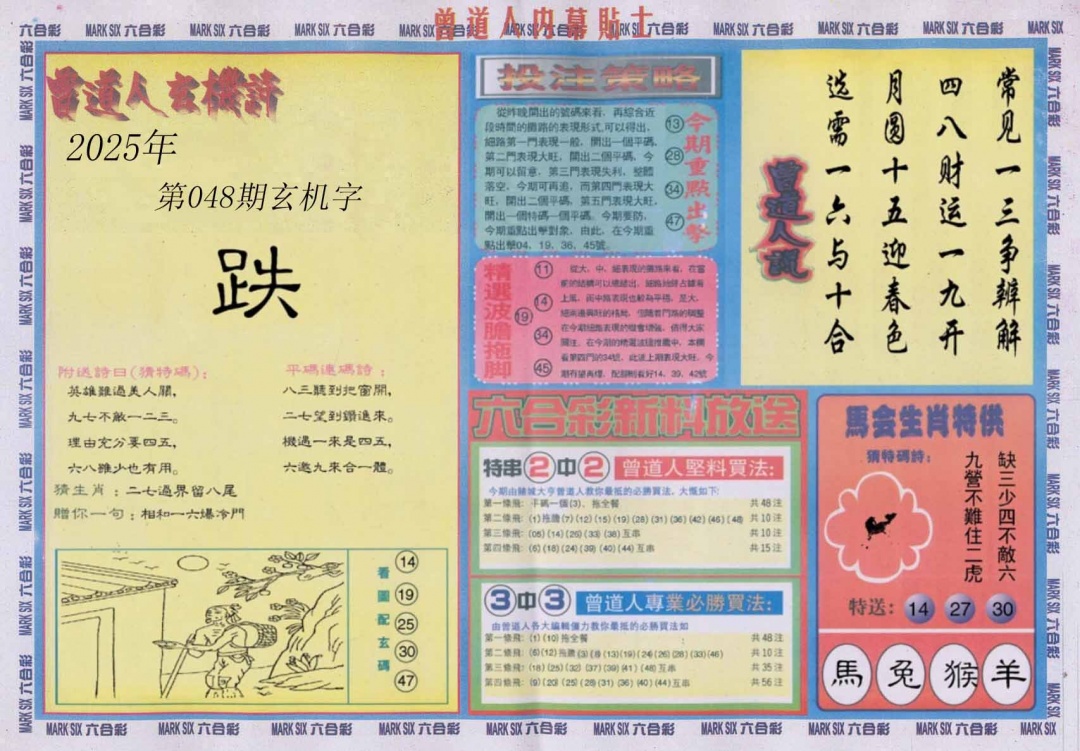 曾道人内幕貼士
MARK SIX 六合彩
曾道人玄機詩
2025年
第048期玄机字
跌
附送詩曰(猜特碼)：
英雄難過美人關，
九七不敵一二三。
理由充分要四五，
六八雖少也有用。
平碼連碼詩：
八三聽到把窗開，
二七望到鑽進來。
機遇一來是四五，
六邀九來合一體。
猜生肖：二七過界留八尾
贈你一句：相和一六爆冷門
看圖配玄碼
14
19
25
30
47
投注策略
從昨晚開出的號碼來看，再綜合近
段時間的攤路的表現形式,可以得出，
細路第一門表現一般，開出一個平碼。
第二門表現大旺，開出二個平碼，今
期可以留意，第三門表現失利，整體
落空，今期可再追，而第四門表現大
旺，開出二個平碼，第五門表現大旺，
開出一個特碼一個平碼，今期要防，
今期重點出擊對象，由此，在今期重
點出擊04、19、36、45號。
13
28
34
47
今期重點出擊
精選波膽拖脚
11
14
19
34
45
在今期細路表現的機會頗強，值得大家
看第四門的34號，此波上期表現大旺，今
期有望再爆，配腳則看好14、39、42號
六合彩新料放送
特串2中2 曾道人堅料買法：
今期由賭城大亨曾道人教你最抵的必勝買法，大慨如下：
第一條飛：平碼一個(3)，拖全餐 共48注
第二條飛：(1)拖膽(7)(12)(15)(19)(28)(31)(36)(42)(46)(48) 共10注
第三條飛：(05)(14)(26)(33)(38)互串 共10注
第四條飛：(6)(18)(24)(39)(40)(44)互串 共15注
3中3 曾道人專業必勝買法：
由曾道人各大編輯僅力教你最抵的必勝買法如
第一條飛：(1)(10)拖全餐 共48注
第二條飛：(6)(12)拖膽(3)(8)(13)(19)(24)(26)(28)(33)(46) 共10注
第三條飛：(18)(25)(32)(37)(39)(41)(48)互串 共35注
第四條飛：(9)(20)(25)(28)(31)(36)(40)(44)互串 共56注
常见一三争辨解
四八财运一九开
月圆十五迎春色
选需一六与十合
曾道人說
馬会生肖特供
猜特碼詩：
缺三少四不敵六
九營不難住二虎
特送：14 27 30
馬 兔 猴 羊
MARK SIX 六合彩